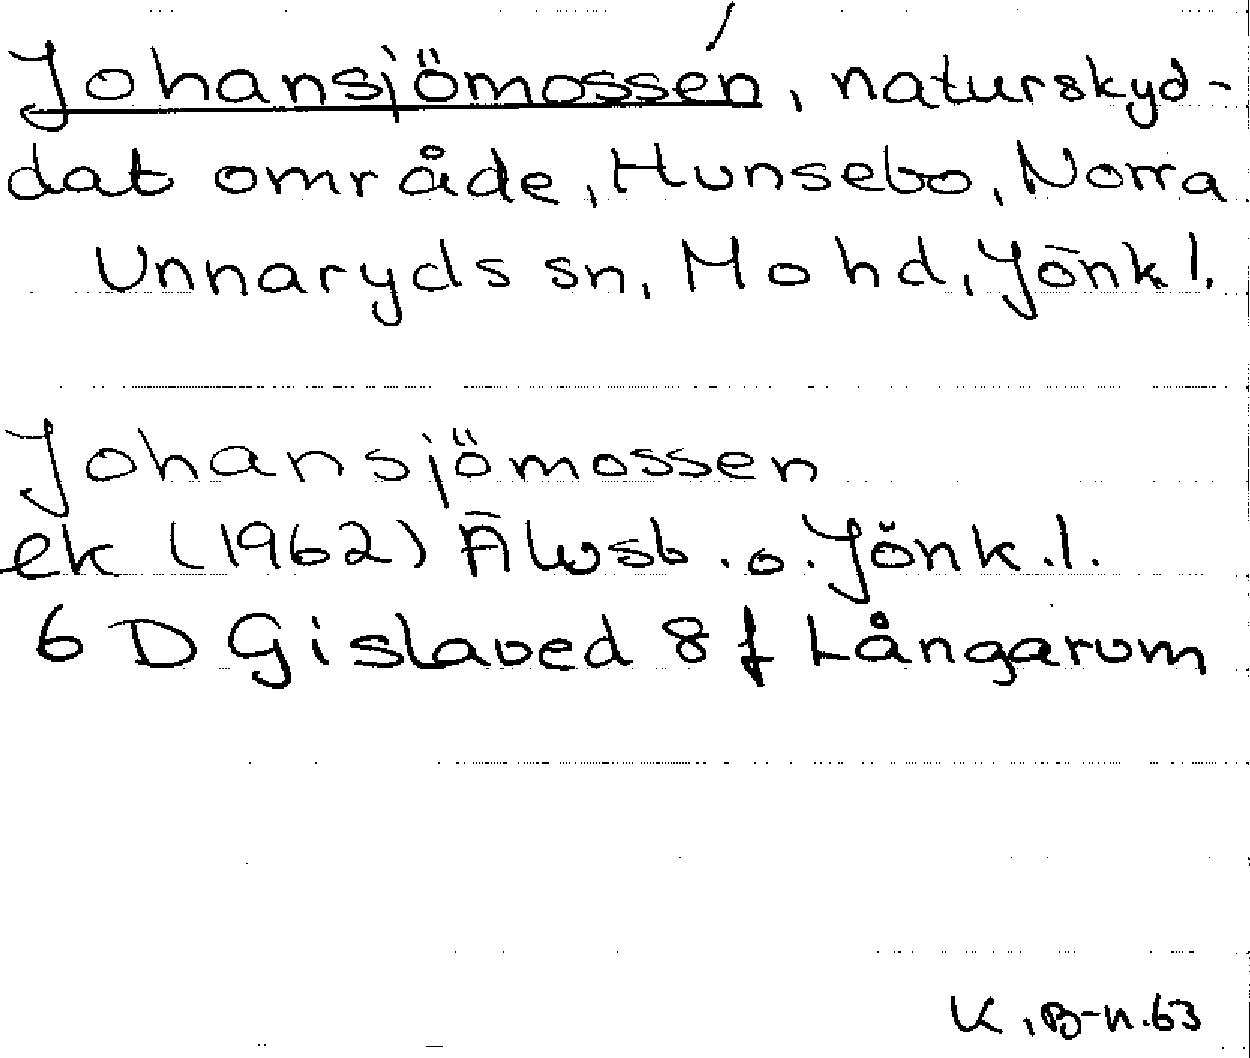 Johansjömossen, naturskyd-
dat område, Hunsebo, Norra
Unnaryds sn, Mo hd, Jönk l.
Johansjömossen
ek (1962) Älvsb. o. Jönk. l.
6 D Gislaved 8 f Långarum
K. B-n. 63